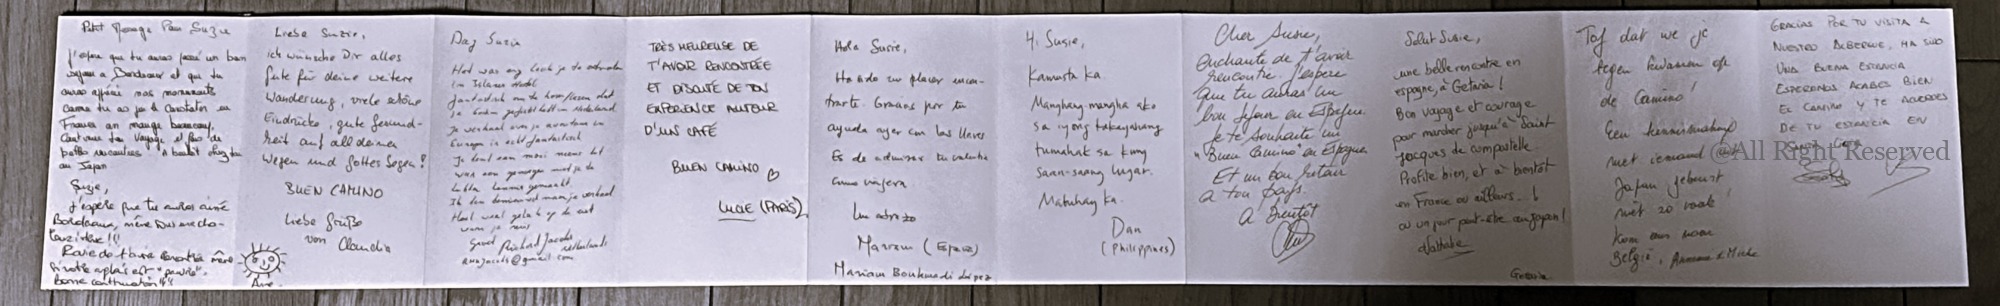 Petit message Pour Suzie
J'espère que tu auras passé un bon
séjour a Bordeaux et que tu
auras apprécié nos monuments
comme tu as pu le constater en
France on mange beaucoup,
Continue ton voyage et fais de
belles rencontres. A bientôt chez toi
au Japon
Suzie,
J'espère que tu auras aimé
Bordeaux, même
Ravie de t'avoir rencontré même
si notre anglais est "pauvre".
Bonne continuation !!!
Liebe Suzie,
ich wünsche Dir alles
Gute für deine weitere
Wanderung, viele schöne
Eindrücke, gute Gesund-
heit auf all deinen
Wegen und Gottes Segen!
BUEN CAMINO
Liebe Grüße
von Claudia
Ane
Dag Suzie
Het was erg leuk je te ontmoeten
in Hotel
fantastisch om te horen dat
je hebt in Nederland
Je verhaal over je avontuur in
Europa is echt fantastisch
Je bent een mooi mens het
was een genoegen met je te
hebben kennis gemaakt.
Ik ben benieuwd naar je verhaal
Heel veel geluk op de rest
van je reis
Groet Richard Jacobs
Netherlands
TRÈS HEUREUSE DE
T'AVOIR RENCONTRÉE
ET DISCUTÉ DE TON
EXPERIENCE AUTOUR
D'UN CAFÉ
BUEN CAMINO
LUCIE (PARIS)
Hola Susie,
Ha sido un placer encon-
trarte. Gracias por tu
ayuda ayer con las llaves
Es de admirar tu valentía
como viajera
Un abrazo
Mariam (España)
Mariam Boukmadi López
Hi Susie,
Kamusta ka.
Manghang-mangha ako
sa iyong kakayahang
tumahak sa kung
saan-saang lugar.
Mabuhay ka.
Dan
(Philippines)
Cher Susie,
enchante de t'avoir
rencontre. J'espère
que tu auras un
bon sejour en Espagne
Je te souhaite un
"Buen Camino" en Espagne
Et un bon retour
a ton pays.
A Bientôt
Salut Susie,
une belle rencontre en
espagne, à Getaria!
Bon voyage et courage
pour marcher jusqu'à Saint
Jacques de compostelle
Profite bien, et à bientôt
en France ou ailleurs...!
ou un jour peut-être au Japon!
Nathalie
Tof dat we je
tegen kwamen op
de Camino!
Een kennismaking
met iemand uit
Japan gebeurt
niet zo vaak!
Kom eens naar
België,
GRACIAS POR TU VISITA A
NUESTRO ALBERGUE, HA SIDO
UNA BUENA ESTANCIA
ESPERAMOS ACABES BIEN
EL CAMINO Y TE ACUERDES
DE TU ESTANCIA EN
©All Right Reserved